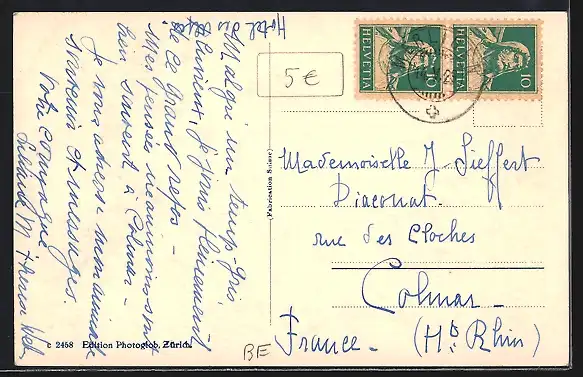 Hotel du
Malgré un temps gris
je jouis pleinement
de ce grand repos –
Mes pensées néanmoins vont
bien souvent à Colmar –
Je vous adresse non amicale
souvenir et messages.
Votre compagne
5€
HELVETIA
10
HELVETIA
10
(Fabrication Suisse)
Mademoiselle J. Sieffert
Diaconat.
rue des Cloches
Colmar
France – (Ht Rhin)
c 2458 Edition Photoglob, Zürich.
BE